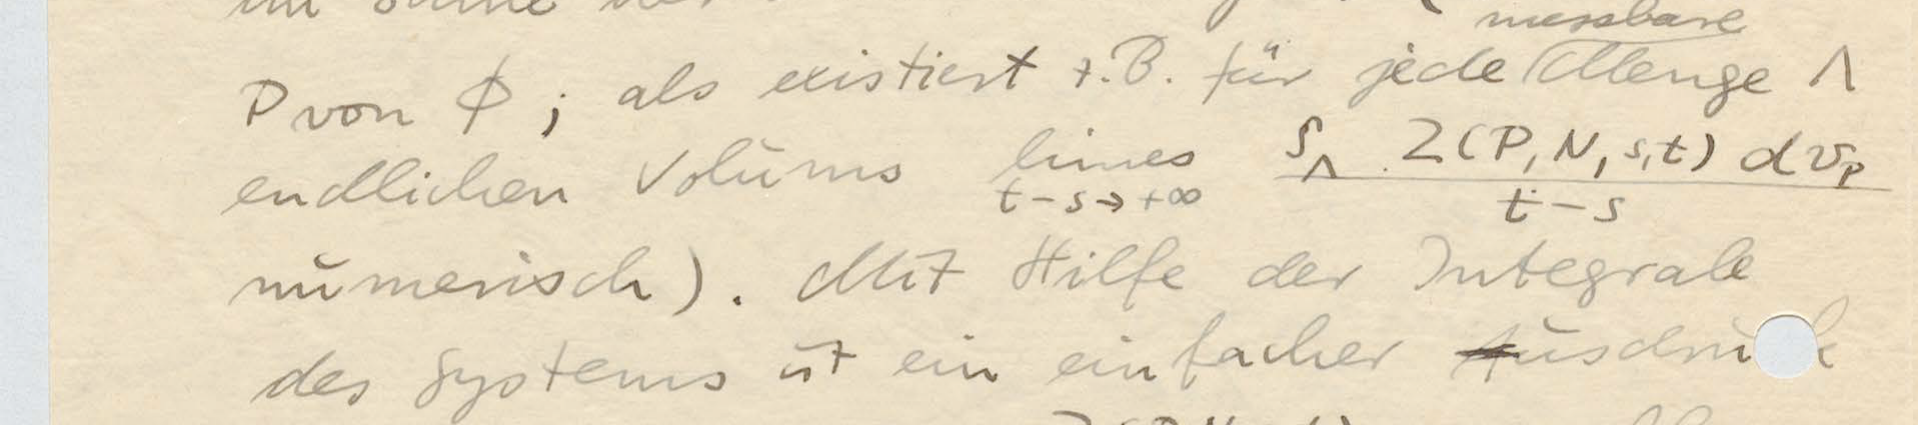 im Sinne der
messbare
P von ϕ; als existiert z.B. für jede Menge Λ
endlichen Volums limes t-s→+∞ ∫_Λ Z(P,N,s,t) dv_P / t-s
numerisch). Mit Hilfe der Integrale
des Systems ist ein einfacher Ausdruck